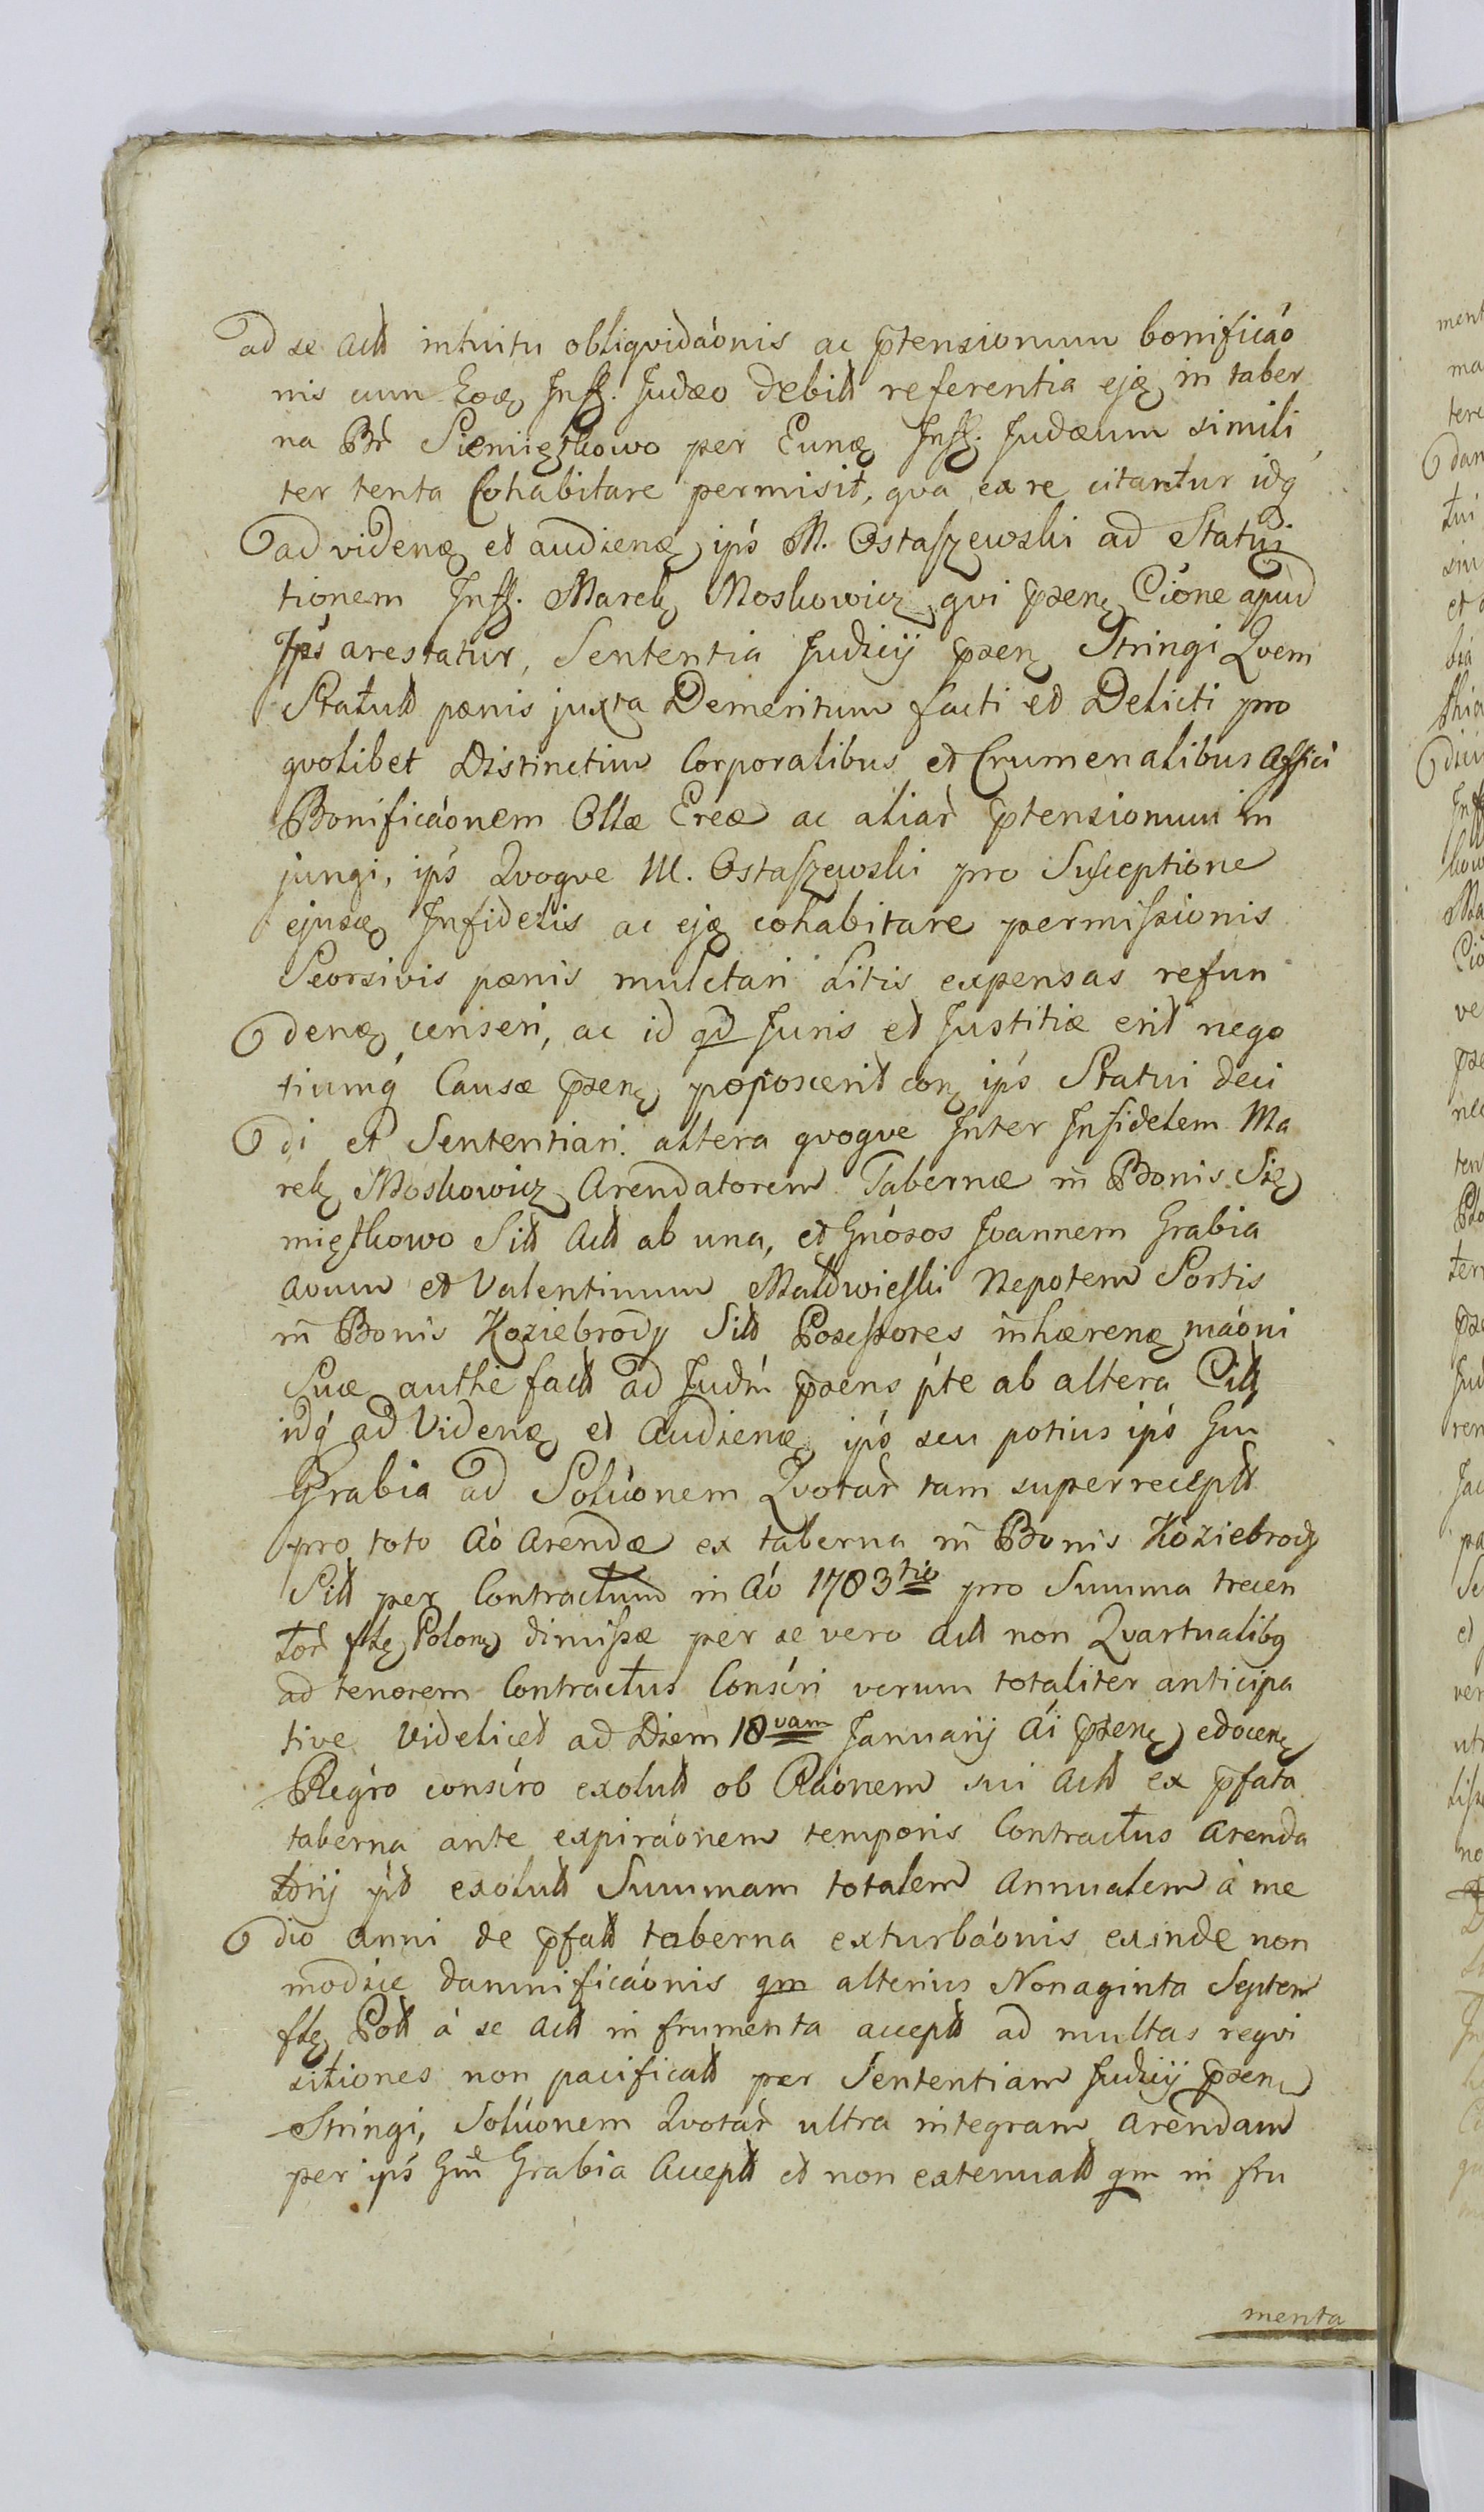 ad se actt intuitu obliqvidaónis ac p̄tensionum bonificáo
nis cum Eoę Inff. Judæo debitt referentia ejq in taber
na Br̃ Siemięthowo per Eunq Inff. Judæum simili
ter tenta Cohabitare permisit, qva ex re citantur idq́
ad videnq et audienq ips M. Ostaszewski ad Statui
tionem Inff. Marek Moskowicz qvi p̄senę Ciòne apud
Ips arestatur, Sententia Judicij p̄senę Stringi Qvem
Statutt pænis juxta Demeritum facti et Delicti pro
qvolibet Distinctim Corporalibus et Crumenalibus Affici
Bonificáonem Ollæ Ereæ ac aliar̃ p̄tensionum in
jungi, ips Qvoqve M. Ostaszewski pro Susceptione
ejusq Infidelis ac ejq cohabitare permissionis
Seorsivis pænis mulctari Litis expensas refun
denq censeri, ac id qd Juris et Justitiæ erit nego
tiumq́ Causæ p̄senę poposcerit conę ips Statui deci
di et Sententiari. altera qvoqve Inter Infidelem Ma
rek Moskowicz Arendatorem Tabernæ in Bonis Się
mięthowo Sitt Actt ab una, et Gnósos Joannem Grabia
avum et Valentinum Maldwieski Nepotem Sortis
in Bonis Koziebrody Sitt Possessores inhærenq máoni
Suæ authe factt ad Judm p̄sens pte ab altera Citt
idq́ ad Videnq et Audienq ips seu potius ips Gm
Grabia ad Solúonem Qvotar̃ tam superreceptt
pro toto Aó Arendæ ex taberna in Bonis Koziebrody
Sitt per Contractum in Aó 1783tio pro Summa trecen
tor̃ flę Polonę dimissæ per se vero actt non Qvartualibq
ad tenorem Contractus Conscri verum totaliter anticipa
tive Videlicet ad Diem 18vam Januarij Ai p̄senę edocenę
Regro conscro exolutt ob Ráonem sui actt ex p̄fata
taberna ante expiráonem temporis Contractus Arenda
torij pd exolutt Summam totalem Annualem à me
dio anni de p̄fatt taberna exturbáonis exinde non
modicæ damnificáonis qm alterius Nonaginta Septem
flę Pol̃ à se actt in frumenta acceptt ad multas reqvi
sitiones non pacificatt per Sententiam Judicij p̄senę
Stringi, Solúonem Qvotar̃ ultra integram Arendam
per ips Gm Grabia Acceptt et non extenuatt qm in fru
menta